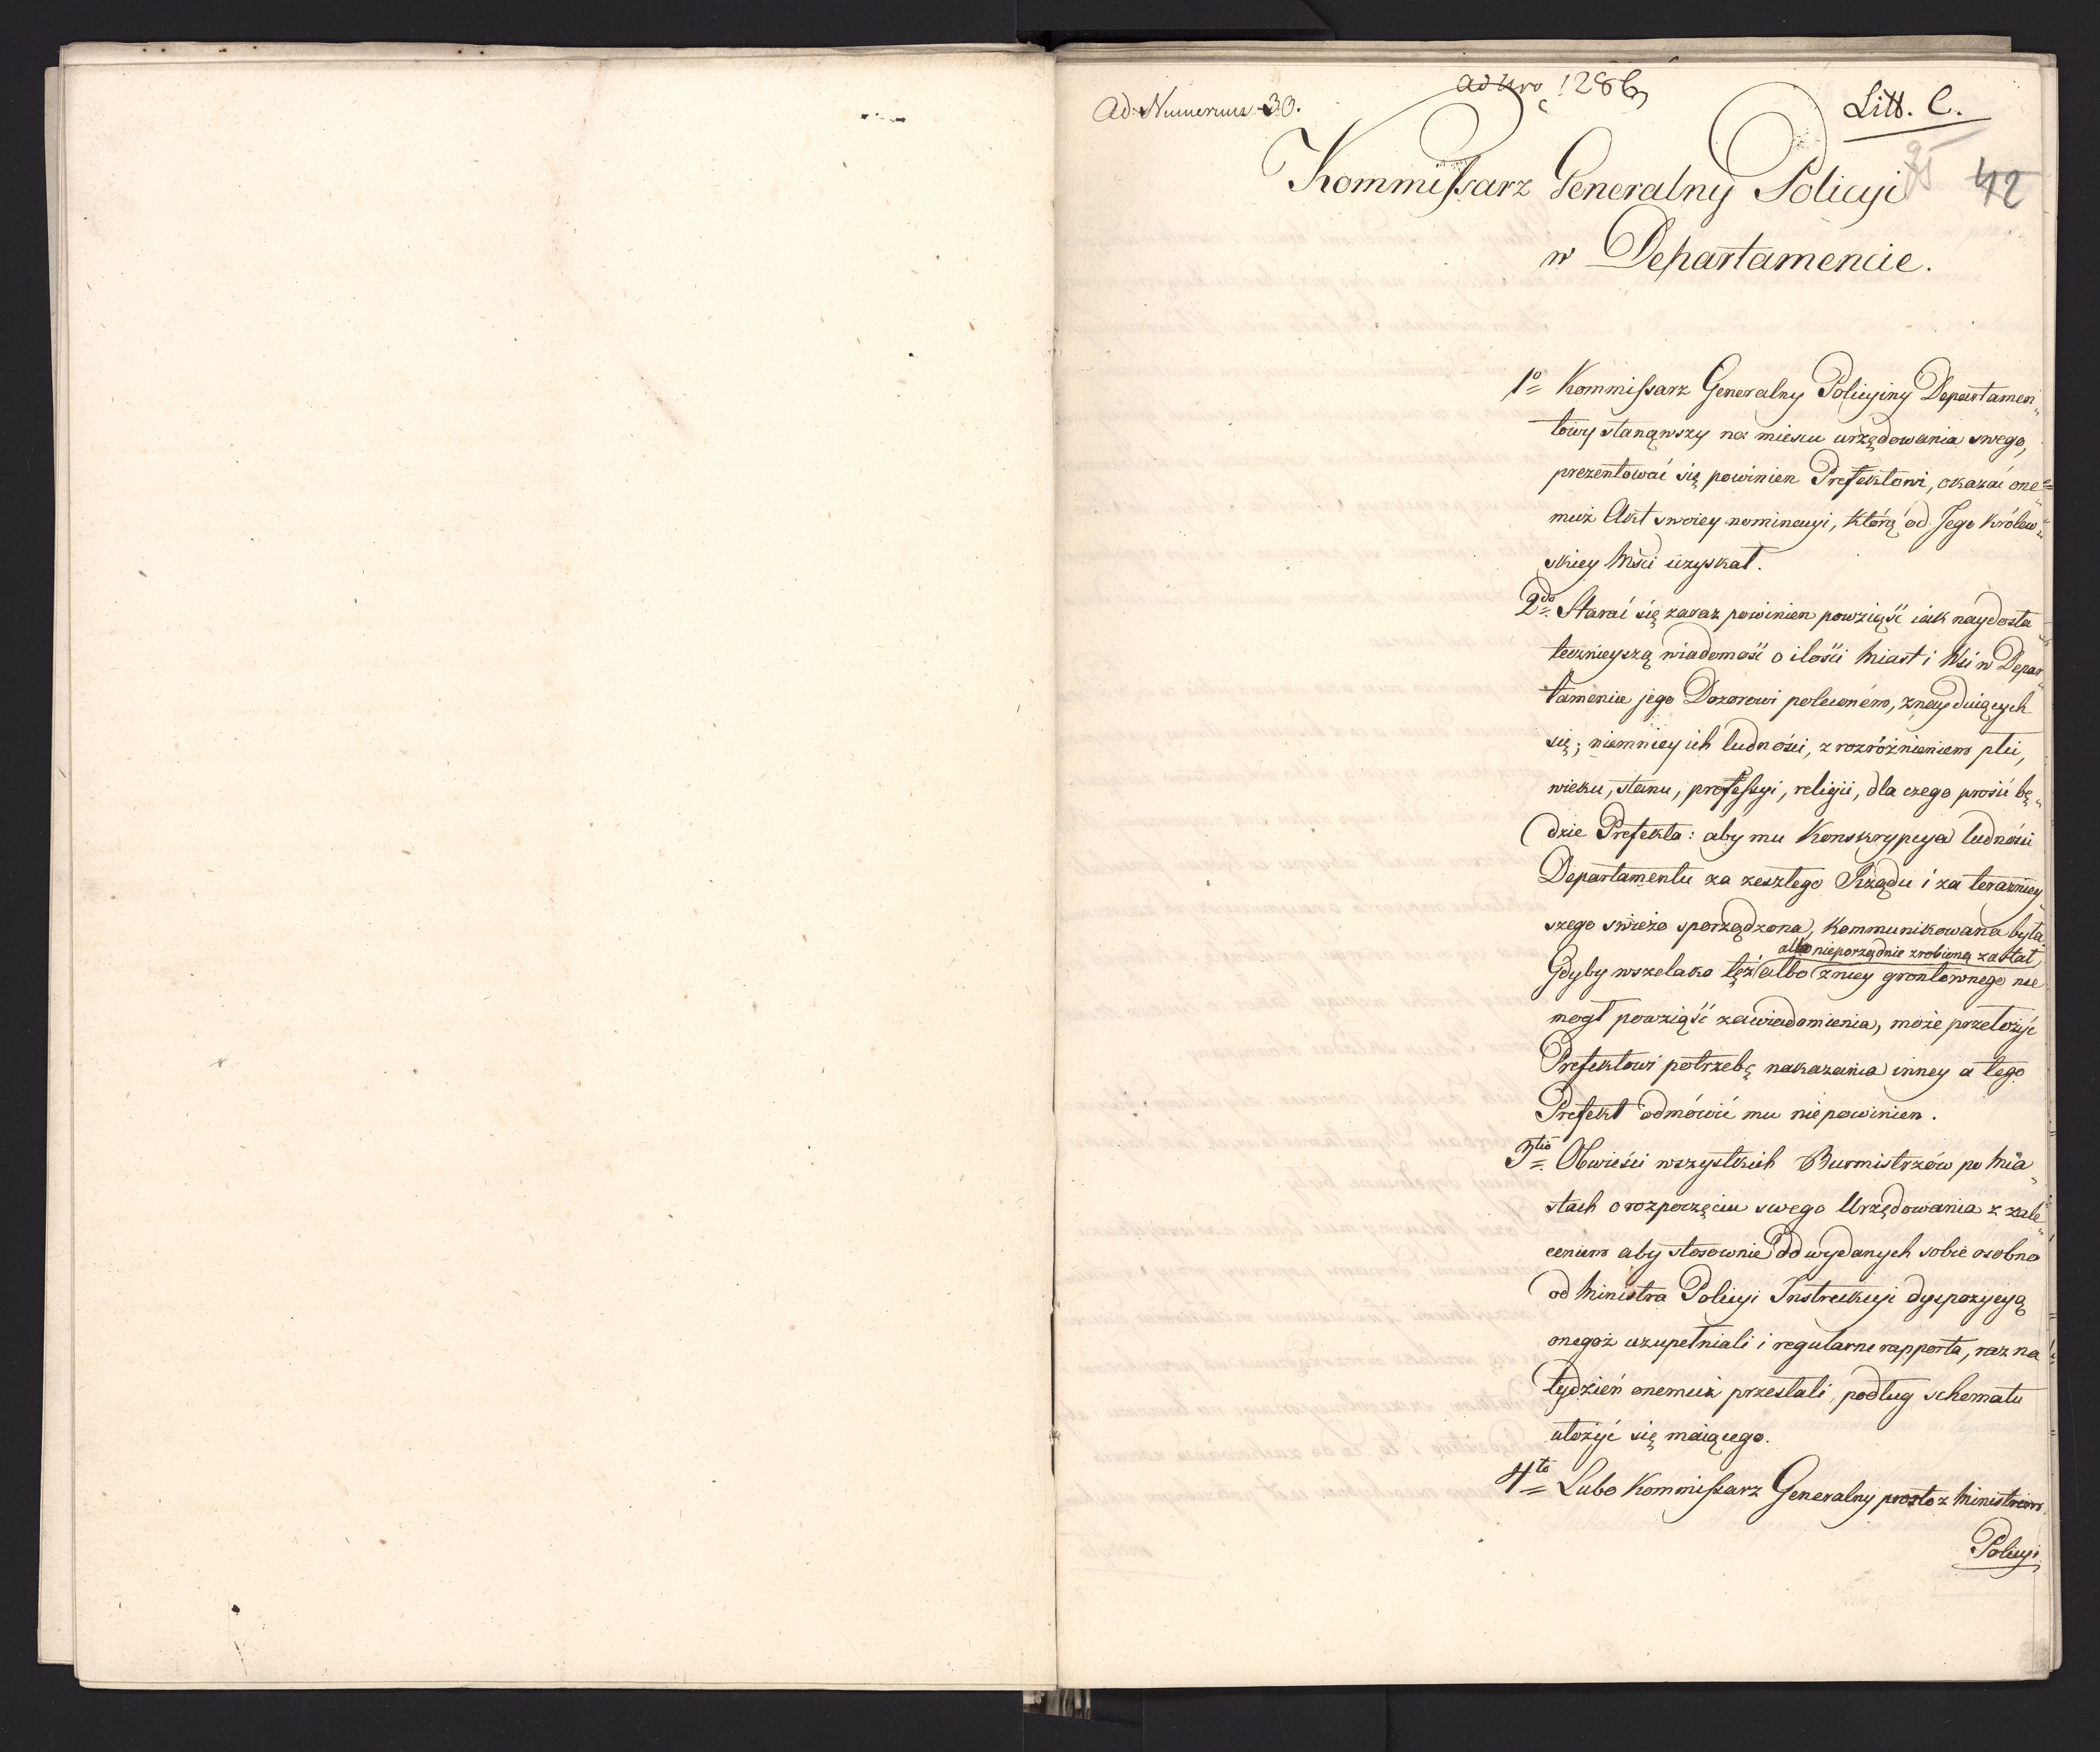 Ad Numerum 30.
ad Nro 1286
Litt. C.
42
Kommissarz Generalny Policyi
w Departamencie.
1o Kommissarz Generalny Policyiny Departamen„
towy stanąwszy na mieyscu urzędowania swego,
prezentować się powinien Prefektowi, okazać one„
muż Akt swoiey nominacyi, którą od Jego Królew„
skiey Mści uzyskał.
2do Starać się zaraz powinien powziąść iak naydosta„
tecznieyszą wiadomość o ilości Miast i Wsi w Depar„
tamencie jego Dozorowi poleconém, znayduiących
się; niemniey ich ludności, z rozróżnieniem płci,
wieku, stanu, professyi, religii, dla czego prosić bę„
dzie Prefekta: aby mu Konskrypcya ludności
Departamentu za zeszłego Rządu i za teraźniey„
szego swieżo sporządzona, kommunikowana była
albo nieporządnie zrobioną zastał
Gdyby wszelako téż albo z niey grontownego nie
mogł powziąść zawiadomienia, może przełożyć
Prefektowi potrzebę nakazania inney a tego
Prefekt odmówić mu nie powinien.
3tio Obwieści wszystkich Burmistrzów po Mia„
stach o rozpoczęciu swego Urzędowania z zale„
ceniem aby stosownie do wydanych sobie osobno
od Ministra Policyi Instrukcyi dyspozycyą
onegoż uzupełniali i regularne rapporta, raz na
tydzień onemuż przesłali, podług schematu
ułożyć się maiącego.
4to Lubo Kommissarz Generalny prosto z Ministrem
Policyi